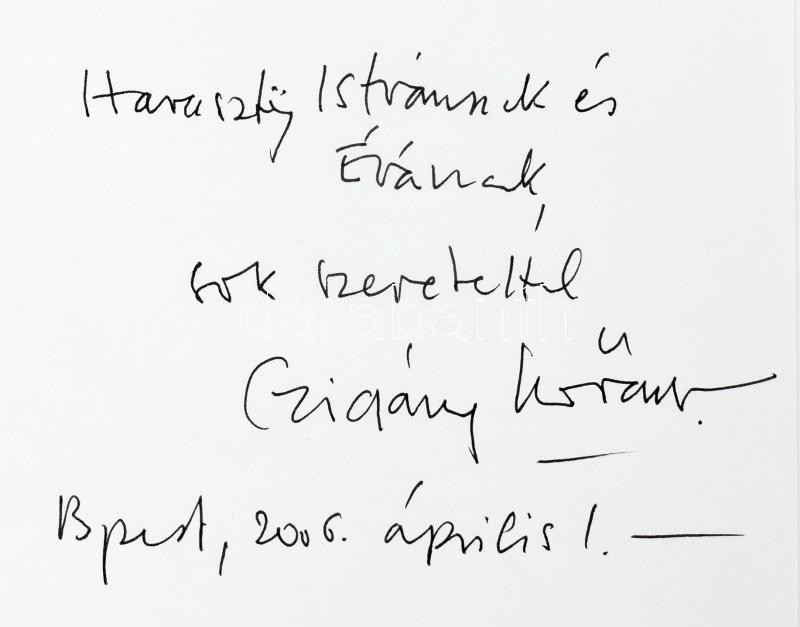 Harasztÿ Istvánnak és
Évának,
sok szeretettel
Czigány Lóránt.
Bpest, 2006. április 1. —
darabanth